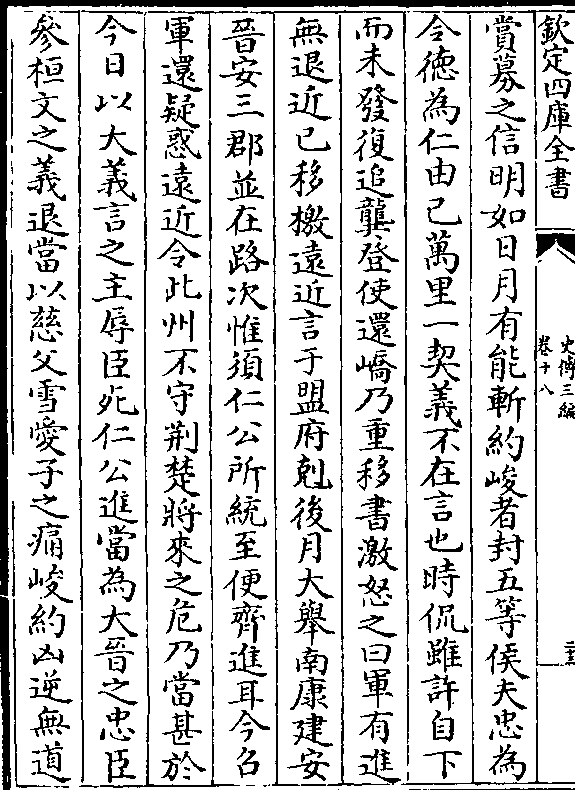 欽定四庫全書
史傳三編
卷十八
賞募之信明如日月有能斬約峻者封五等侯夫忠為
令徳為仁由己萬里一契義不在言也時侃雖許自下
而未發復追龔登使還嶠乃重移書激怒之曰軍有進
無退近已移檄遠近言于盟府剋後月大舉南康建安
晉安三郡並在路次惟須仁公所統至便齊進耳今召
軍還疑惑遠近令此州不守荆楚將來之危乃當甚於
今日以大義言之主辱臣死仁公進當為大晉之忠臣
參桓文之義退當以慈父雪愛子之痛峻約凶逆無道